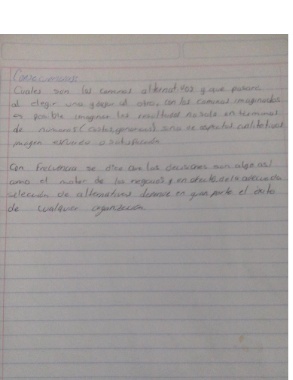 Consecuencias
Cuales son los caminos alternativos y que pasaria
al elegir una y dejar al otro, con los caminos imaginados
es posible imaginar los resultados no solo en terminos
de numeros (costos, ganancias) sino en aspectos cualitativos
imagen exclusion o satisfacción
Con frecuencia se dice que las decisiones son algo asi
como el motor de los negocios y en efecto, de la adecuada
selección de alternativas depende en gran parte el éxito
de cualquier organización.